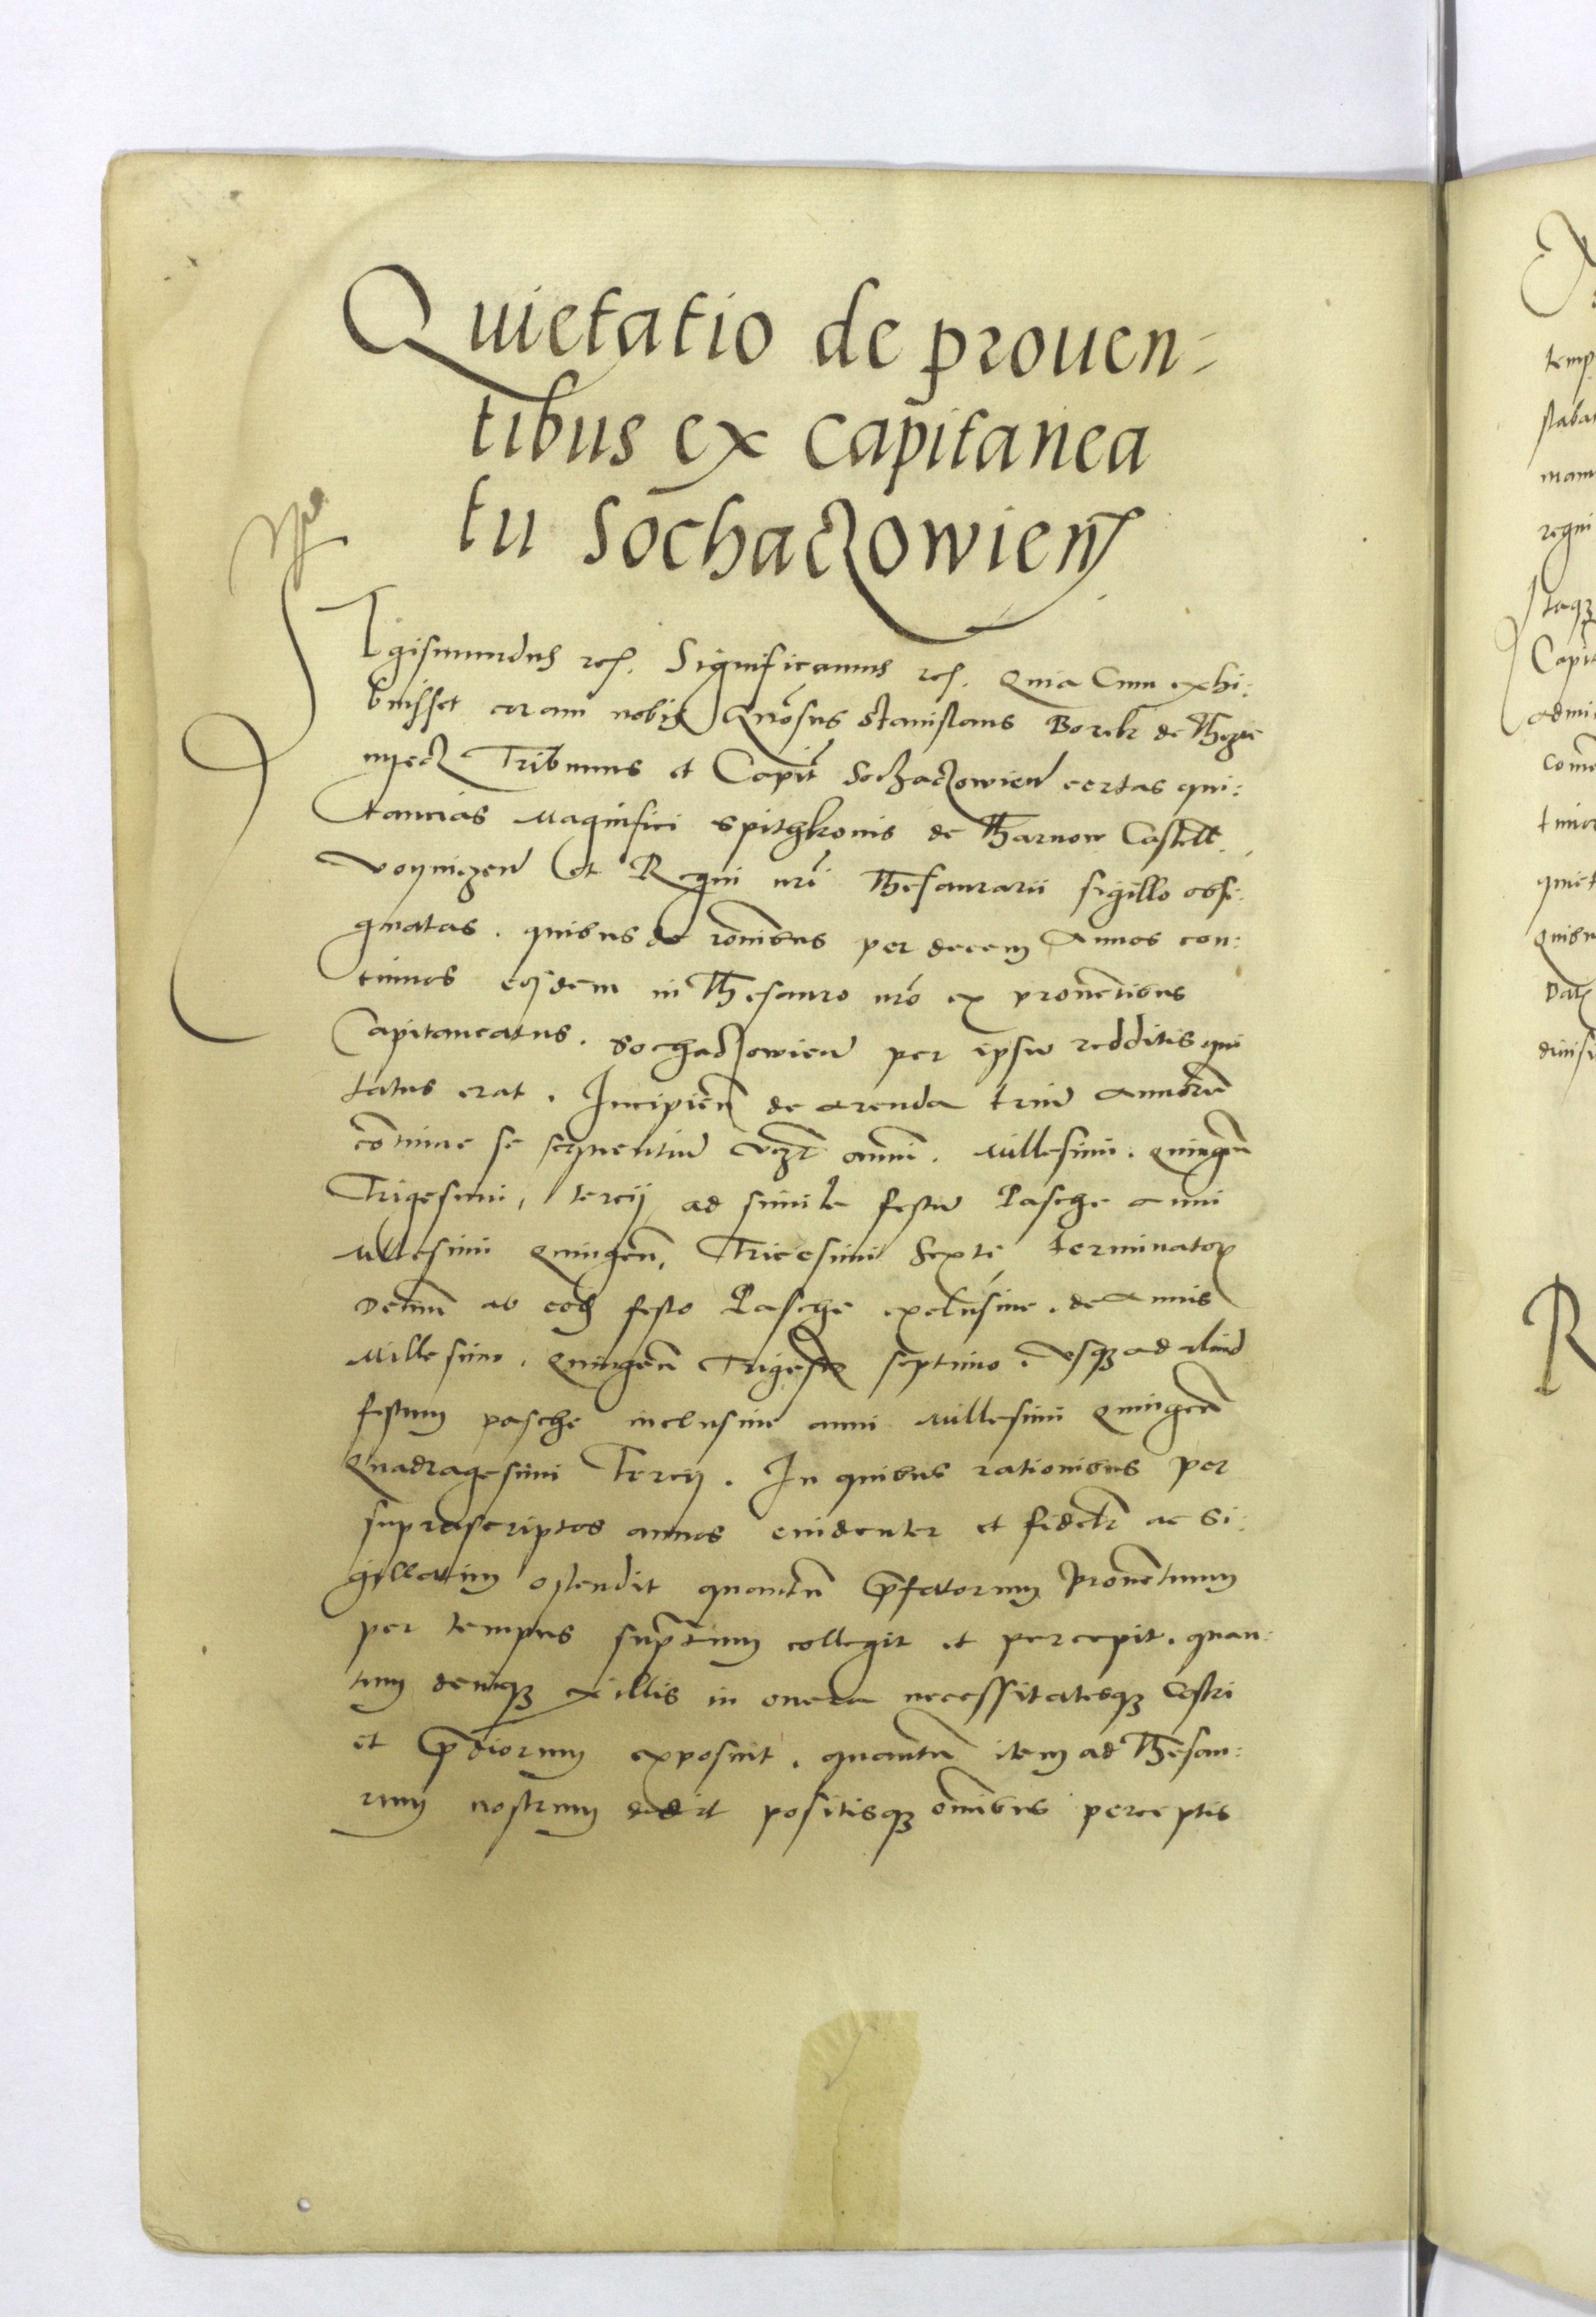 Quietatio de prouen-
tibus ex capitanea
tu Sochaczowien
Sigismundus rex. Significamus rex. Quia Cum exhi:
buisset coram nobis Gnosus Stanislaus Borek de
Tribunus et Capit Sochaczowien certas qui:
tancias Magnifici Spithkonis de Tharnow Castell.
Voyniczen et Regni nri Thesaurarii sigillo obsi:
gnatas. quibus de ronibus per decem Annos con:
tinuos eisdem in Thesauro nro ex prouentibus
Capitaneatus. Sochaczowien per ipsu redditis qui
tatus erat. Incipien de arenda triu annoru
continue se sequentiu vzt anni. Millesimi. Quingen
Trigesimi, tercij ad simile festu Pasche anni
Millesimi Quingen, Tricesimi Sexti terminator
Demu ab eod festo Pasche exclusiue. de Annis
Millesimo. Quingen Trigesio septimo. vsq ad aliud
festum pasche inclusiue anni Millesimi Quingen
Quadragesimi Tercij. In quibus rationibus per
suprascriptos annos euidenter et fidelr ac si:
gillatim ostendit quantu pfatorum prouentuum
per tempus suptum collegit et percepit. quan:
tum deniq ex illis in onera necessitatesq Castri
et pdiorum exposuit. quantu item ad Thesau:
rum nostrum dedit positisq omibus perceptis